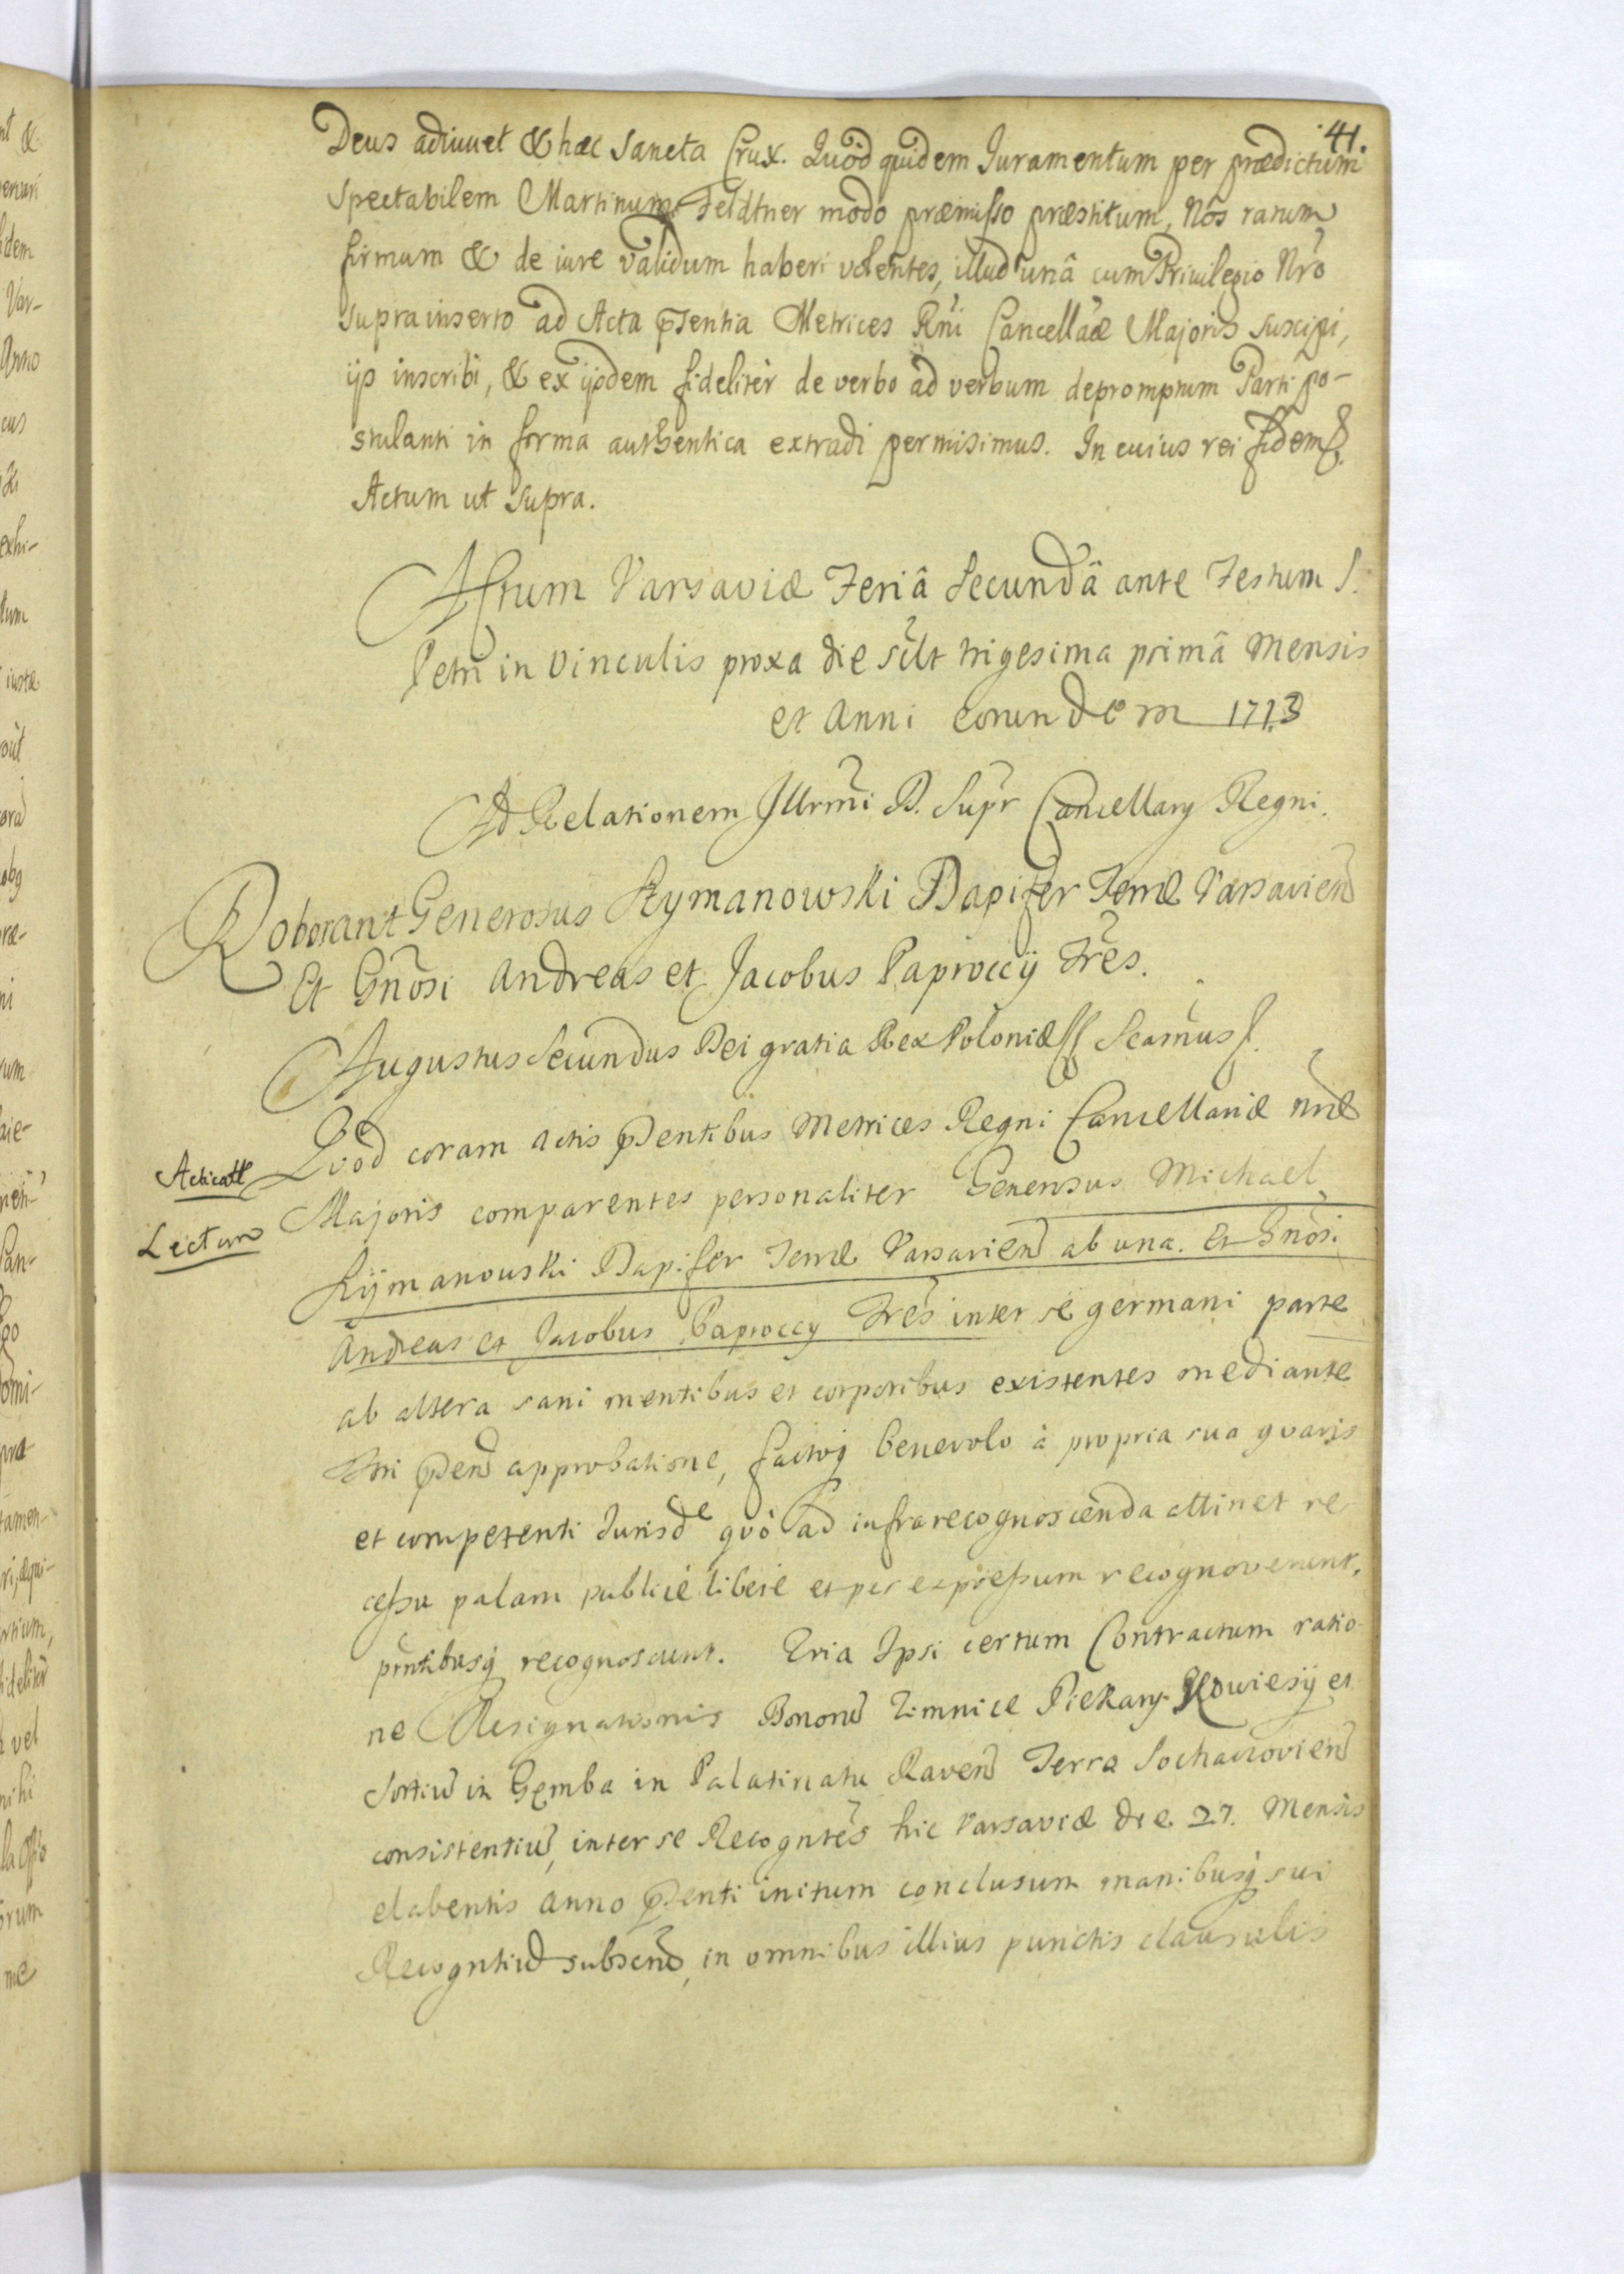 41.
Deus adiuuet & hæc Sancta Crux. Quòd quidem Juramentum per prædictum
Spectabilem Martinum Feldtner modo præmisso præstitum, Nos ratum
firmum & de iure validum haberi volentes, illud unâ cum Priuilegio Nr̃o
suprainserto ad Acta p̃sentia Metrices Rñi Cancellãæ Majoris suscipi,
ijs inscribi, & ex ijsdem fideliter de verbo ad verbum depromptum Parti po-
stulanti in forma authentica extradi permisimus. In cuius rei fidem
Actum ut supra.
Actum Varsaviæ Feriâ Secundâ ante Festum S.
Petri in Vinculis proxa die scilt trigesima primâ Mensis
et Anni eorundem 1713
Ad Relationem Illrmi D. Supr Cancellary Regni.
Roborant Generosus Szymanowski Dapifer Terræ Varsavien
Et Gñosi Andreas et Jacobus Paproccÿ Frẽs.
Augustus Secundus Dei gratia Rex Poloniæ Scamus
Quod coram actis p̃sentibus Metrices Regni Cancellariæ nræ
Acticatt
Majoris comparentes personaliter Generosus Michael
Lectum
Szÿmanouski Dapifer Terræ Varsavien ab una. Et Gñosi
Andreas et Jacobus Paproccy Frẽs inter se germani parte
ab altera sani mentibus et corporibus existentes mediante
p̃sen approbatione, factoq̃ benevolo à propria sua quavis
et competenti Jurisde quò ad infrarecognoscenda attinet re
cessu palam publicè liberè et per expressum recognoverunt,
pñtibusq̃ recognoscunt. Qvia Ipsi certum Contractum ratio-
ne Resignationis Bonorũ Zimnice Piekary Kowiesÿ et
Sortiũ in Gęmba in Palatinatu Raven Terra Sochaczovien
consistentiũ, inter se Recogntẽs hic Varsaviæ die 27. Mensis
elabentis anno p̃senti initum conclusum manibusq̃ sui
Recogntiũ subscrip, in omnibus illius punctis clausulis